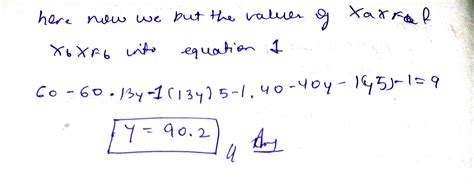 here now we put the values of
X6 XF6 into equation 1
60 - 60 · 13y - 1 (13y) 5 - 1.40 - 40y - 1(y5) - 1 = 9
y = 90.2
Ans